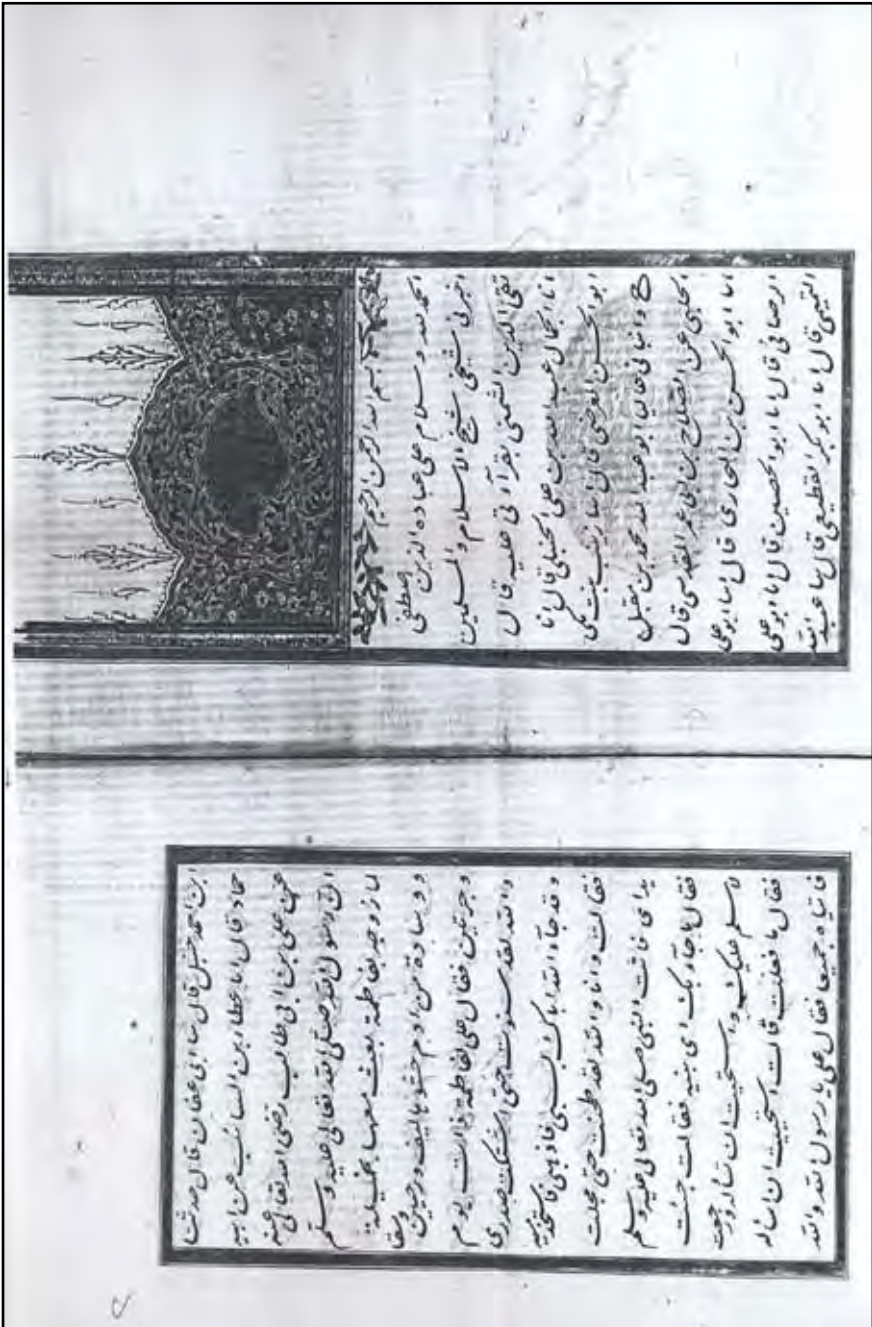 بسم الله الرحمن الرحيم
الحمد لله وسلام على عباده الذين اصطفى
اخبرنى شيخى شيخ الاسلام والمسلمين
تقى الدين الشمنى بقرآءتى عليه قال
انا الجمال عبد الله بن على الحنبلى قال انا
ابو الحسن العرضى قال انا زينب بنت مكى
ح وانبأنى عاليا ابو عبد الله محمد بن مقبل
الحلبى عن الصلاح بن ابى عمر المقدسى قال
انا ابو الحسن بن البخارى قال انا ابو على
الرصافى قال انا ابو الحصين قال انا ابو على
التميمى قال انا ابو بكر القطيعى قال ثنا عبد الله
ابن احمد حنبل قال ثنا ابى عفان قال حدثنا
حماد قال انا عطاء بن السائب عن ابيه
عن على بن ابى طالب رضى الله تعالى عنه
ان رسول الله صلى الله تعالى عليه وسلم
لما زوجه لفاطمة بعث معها بخميلة
ووسادة من ادم حشوها ليف ورحيين وسقا
وجرتين فقال على لفاطمة ذات يوم
والله لقد سنوت حتى اشتكت صدرى
وقد جآء الله اباك بسبى فاذهبى فاستخدميه
فقالت وانا والله لقد طحنت حتى مجلت
يداى فاتت النبى صلى الله تعالى عليه وسلم
فقال ما جآء بك اى بنية فقالت جئت
لاسلم عليك واستحيت ان تساله ورجعت
فقال ما فعلت قالت استحييت ان اساله
فاتياه جميعا فقال على يا رسول الله والله